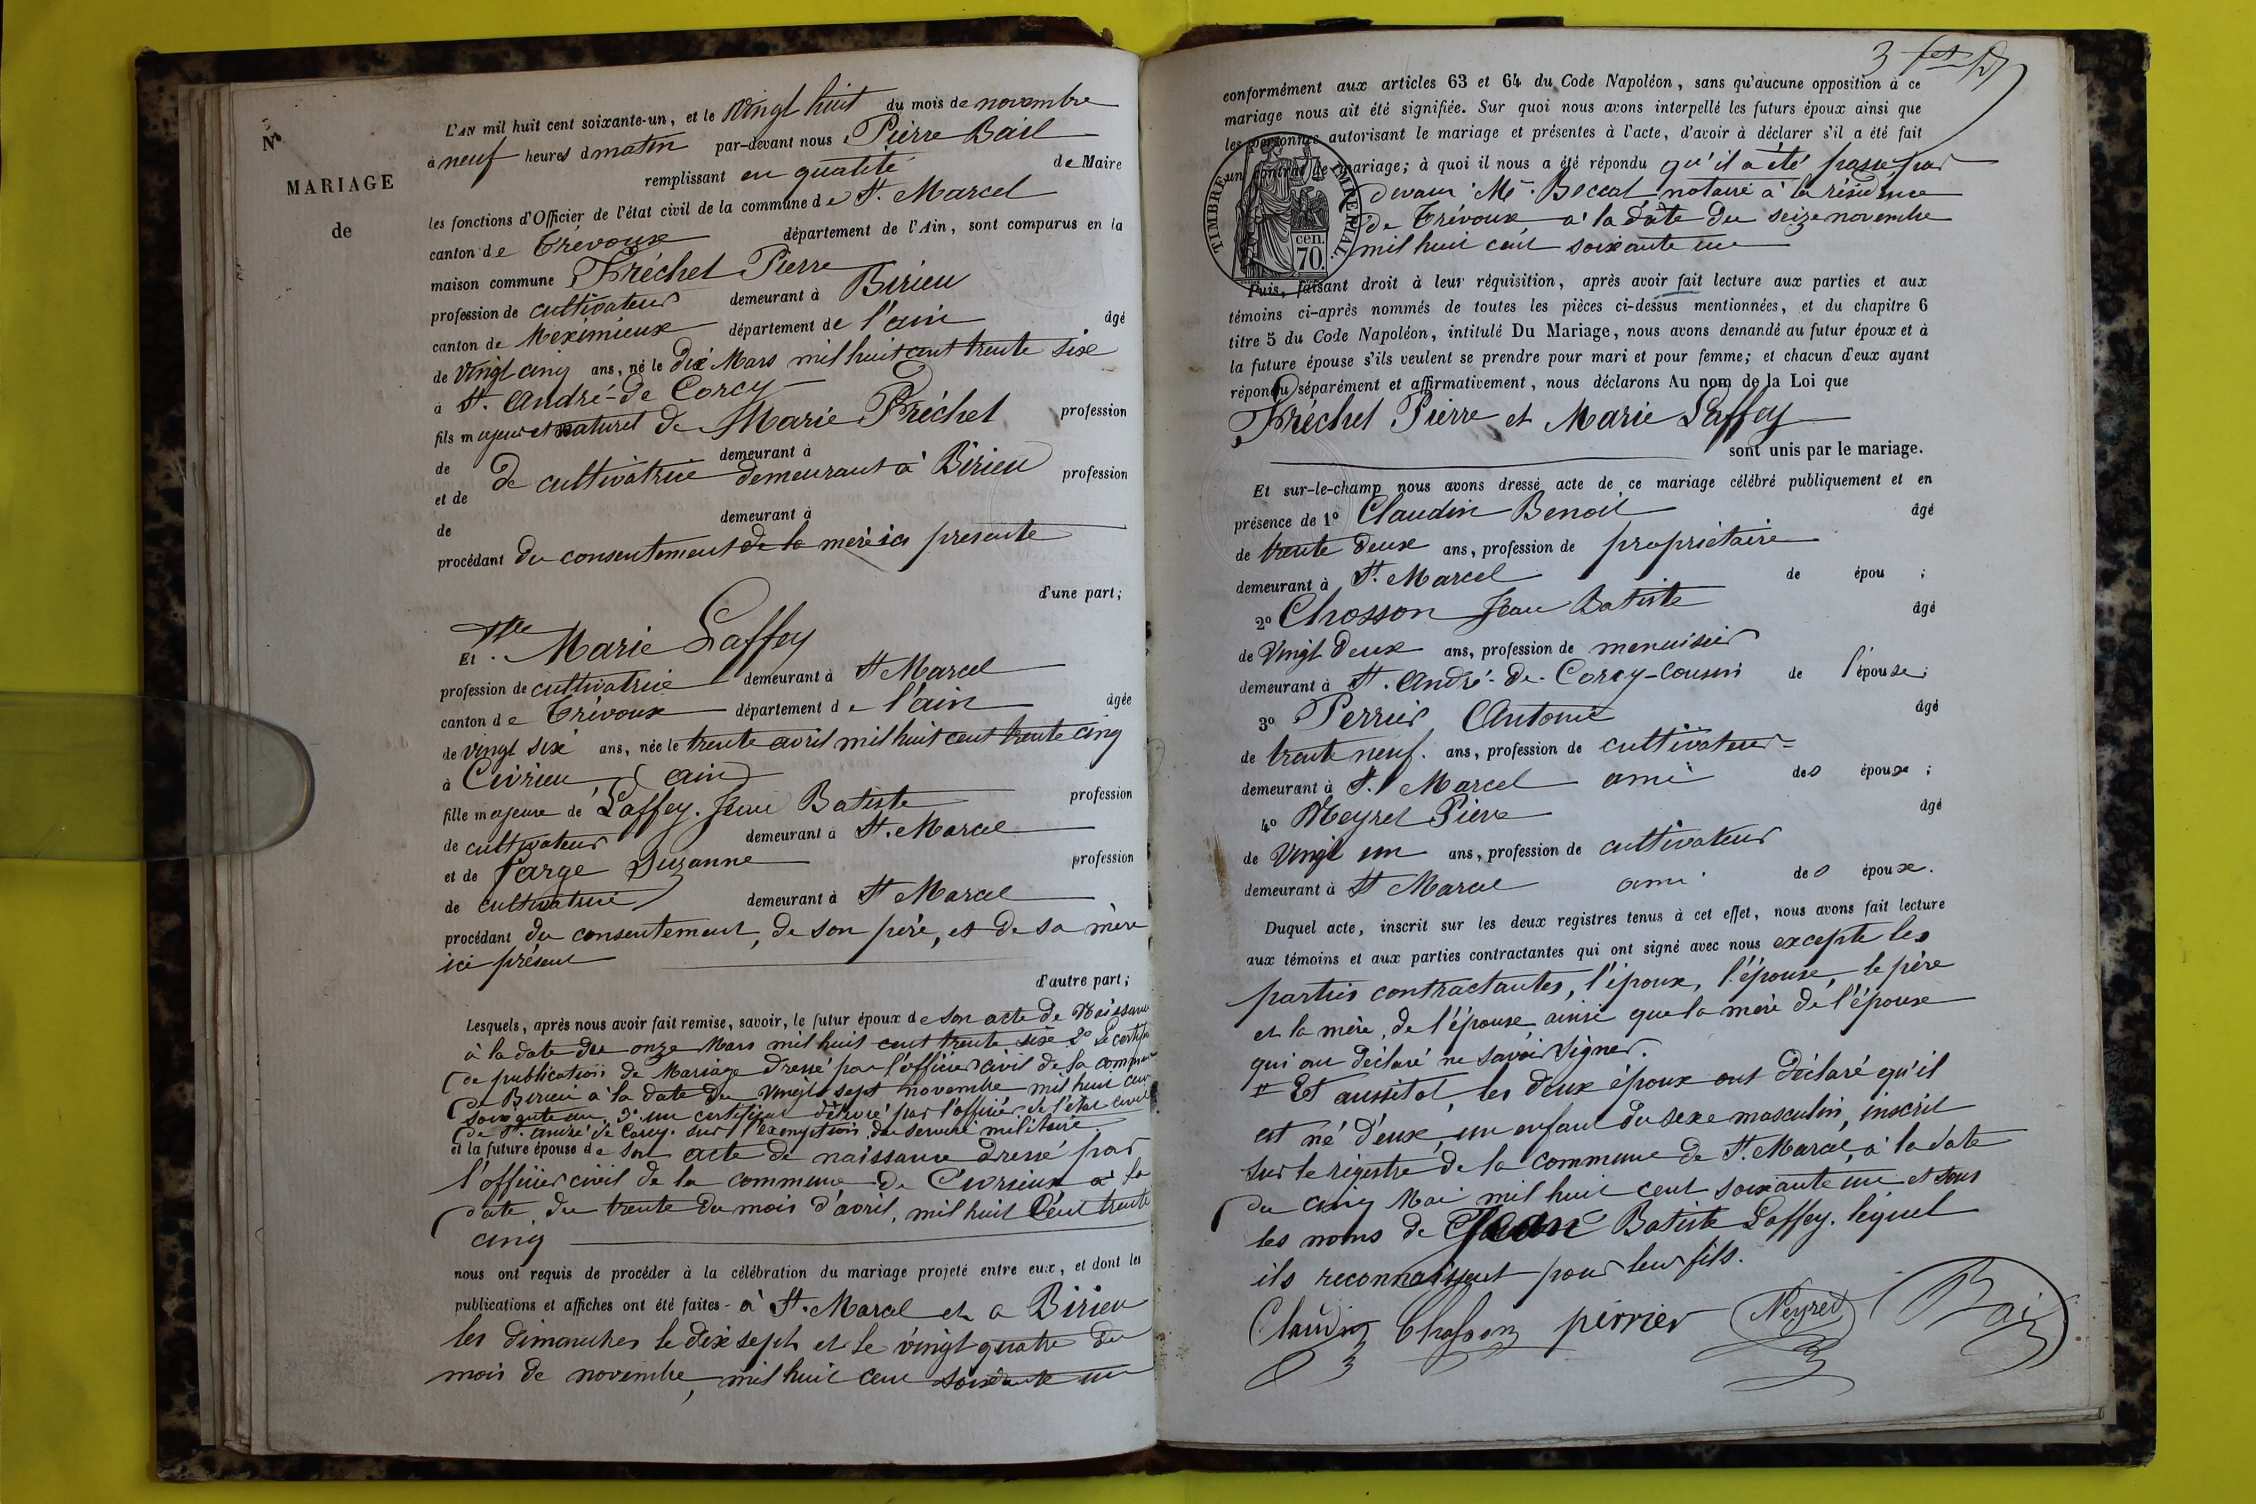 N°
MARIAGE
de
L'AN mil huit cent soixante-un, et le vingt huit du mois de novembre
à neuf heures d matin par-devant nous Pierre Bail
remplissant en qualité de Maire
les fonctions d'Officier de l'état civil de la commune de St. Marcel
canton de Trévoux département de l'Ain, sont comparus en la
maison commune Fréchet Pierre
profession de cultivateur demeurant à Birieu
canton de Meximieux département de l'ain âgé
de vingt cinq ans, né le dix Mars mil huit cent trente six
à St. André-de Corcy
fils majeur et naturel de Marie Fréchet profession
de demeurant à
de cultivatrice demeurant à Birieu
et de profession
de demeurant à
procédant du consentement de la mère ici presente
d'une part;
Et Dlle Marie Laffey
profession de cultivatrice demeurant à St Marcel
canton de Trévoux département de l'ain âgée
de vingt six ans, née le trente avril mil huit cent trente cinq
à Civrieu (ain)
fille majeure de Laffey. Jean Batiste profession
de cultivateur demeurant à St. Marcel
et de Large Suzanne profession
de cultivatrice demeurant à St Marcel
procédant du consentement, de son père, et de sa mère
ici présent
d'autre part;
Lesquels, après nous avoir fait remise, savoir, le futur époux de son acte de Naissance
à la date du onze Mars mil huit cent trente six 2° Le certifi
de publication de Mariage dressé par l'officier civil de la commune
de Birieu à la date du vingt sept novembre mil huit cent
soixante un 3° un certificat délivré par l'officier de l'état civil
de St. André de Corcy. sur l'exemption du service militaire.
et la future épouse de son acte de naissance dressé par
l'officier civil de la commune de Civrieux à la
date du trente du mois d'avril, mil huit Cent trente
cinq
nous ont requis de procéder à la célébration du mariage projeté entre eux, et dont les
publications et affiches ont été faites - à St. Marcel et a Birieu
les dimanches le dix sept et le vingt quatre du
mois de novembre, mil huit cent soixante un
conformément aux articles 63 et 64 du Code Napoléon, sans qu'aucune opposition à ce
mariage nous ait été signifiée. Sur quoi nous avons interpellé les futurs époux ainsi que
les personnes autorisant le mariage et présentes à l'acte, d'avoir à déclarer s'il a été fait
un contrat de mariage; à quoi il nous a été répondu qu'il a été passé par
devant Me. Boccat notaire à la résidence
de Trévoux à la date du seize novembre
mil huit cent soixante un
TIMBRE IMPERIAL
70 cen.
Puis, faisant droit à leur réquisition, après avoir fait lecture aux parties et aux
témoins ci-après nommés de toutes les pièces ci-dessus mentionnées, et du chapitre 6
titre 5 du Code Napoléon, intitulé Du Mariage, nous avons demandé au futur époux et à
la future épouse s'ils veulent se prendre pour mari et pour femme; et chacun d'eux ayant
répondu séparément et affirmativement, nous déclarons Au nom de la Loi que
Fréchet Pierre et Marie Laffey
sont unis par le mariage.
Et sur-le-champ nous avons dressé acte de ce mariage célébré publiquement et en
présence de 1° Claudin Benoit âgé
de trente deux ans, profession de propriétaire
demeurant à St. Marcel de épou ;
2° Chosson Jean Batiste âgé
de vingt deux ans, profession de menuisier
demeurant à St. André-de-Corcy-cousin de l'épouse;
3° Perrier Antoine âgé
de trente neuf. ans, profession de cultivateur
demeurant à St. Marcel ami des époux ;
4° Neyret Pierre âgé
de vingt un ans, profession de cultivateur
demeurant à St Marcel ami des époux.
Duquel acte, inscrit sur les deux registres tenus à cet effet, nous avons fait lecture
aux témoins et aux parties contractantes qui ont signé avec nous excepté les
parties contractantes, l'époux, l'épouse, le père
et la mère, de l'épouse ainsi que la mère de l'épouse
qui ont déclaré ne savoir signer.
Et aussitot les deux époux ont déclaré qu'il
est né d'eux, un enfant du sexe masculin, inscrit
sur le régistre de la commune de St. Marcel, à la date
du cinq Mai mil huit cent soixante un et sous
les noms de Jean Batiste Laffey. lequel
ils reconnaissent pour leur fils.
Claudin Chosson perrier Neyret Bail